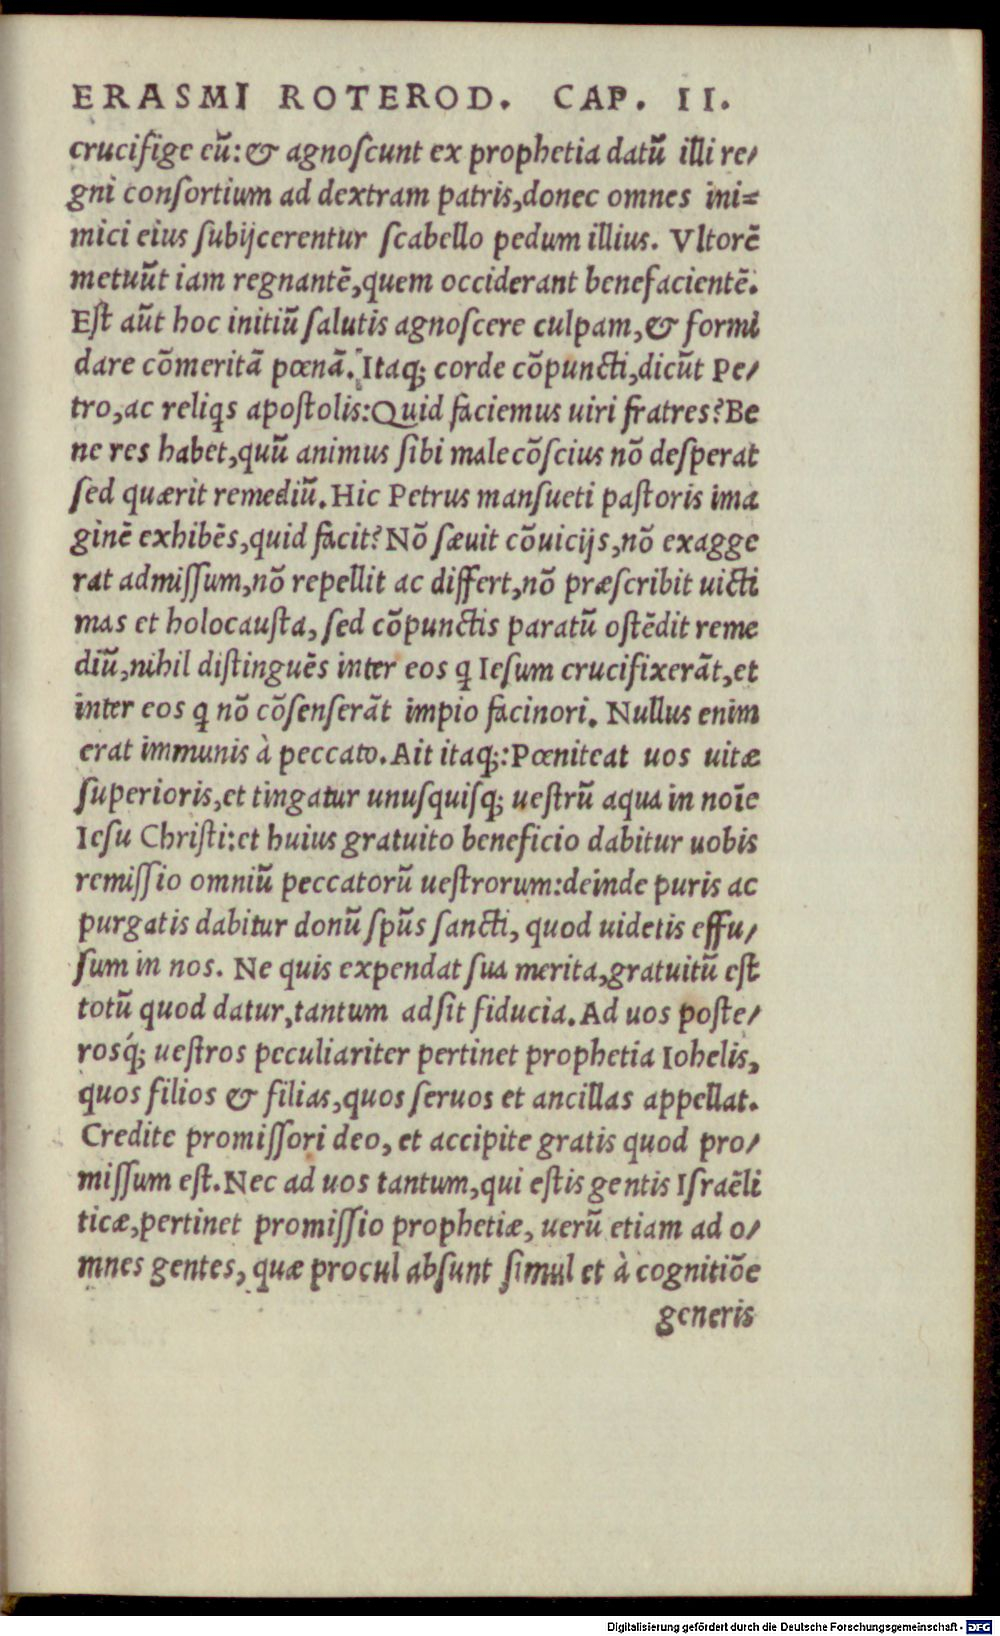 ERASMI ROTEROD. CAP. II.
crucifige eũ: & agnoſcunt ex prophetia datũ illi re/
gni conſortium ad dextram patris,donec omnes ini=
mici eius ſubijcerentur ſcabello pedum illius. Vltorẽ
metuũt iam regnantẽ,quem occiderant benefacientẽ.
Eſt aũt hoc initiũ ſalutis agnoſcere culpam,& formi
dare cõmeritã pœnã. Itaq; corde cõpuncti,dicũt Pe/
tro,ac reliqs apoſtolis:Quid faciemus uiri fratres? Be
ne res habet,quũ animus ſibi male cõſcius nõ deſperat
ſed quærit remediũ. Hic Petrus manſueti paſtoris ima
ginẽ exhibẽs,quid facit? Nõ ſæuit cõuicijs,nõ exagge
rat admiſſum,nõ repellit ac differt,nõ præſcribit uicti
mas et holocauſta, ſed cõpunctis paratũ oſtẽdit reme
diũ,nihil diſtinguẽs inter eos q Ieſum crucifixerãt,et
inter eos q nõ cõſenſerãt impio facinori. Nullus enim
erat immunis à peccato. Ait itaq;: Pœniteat uos uitæ
ſuperioris,et tingatur unuſquiſq; ueſtrũ aqua in noĩe
Ieſu Chriſti: et huius gratuito beneficio dabitur uobis
remiſſio omniũ peccatorũ ueſtrorum: deinde puris ac
purgatis dabitur donũ ſpũs ſancti, quod uidetis effu/
ſum in nos. Ne quis expendat ſua merita,gratuitũ eſt
totũ quod datur,tantum adſit fiducia. Ad uos poſte/
rosq́; ueſtros peculiariter pertinet prophetia Iohelis,
quos filios & filias,quos ſeruos et ancillas appellat.
Credite promiſſori deo, et accipite gratis quod pro/
miſſum eſt. Nec ad uos tantum,qui eſtis gentis Iſraëli
ticæ,pertinet promiſſio prophetiæ, uerũ etiam ad o/
mnes gentes, quæ procul abſunt ſimul et à cognitiõe
generis
Digitalisierung gefördert durch die Deutsche Forschungsgemeinschaft - DFG